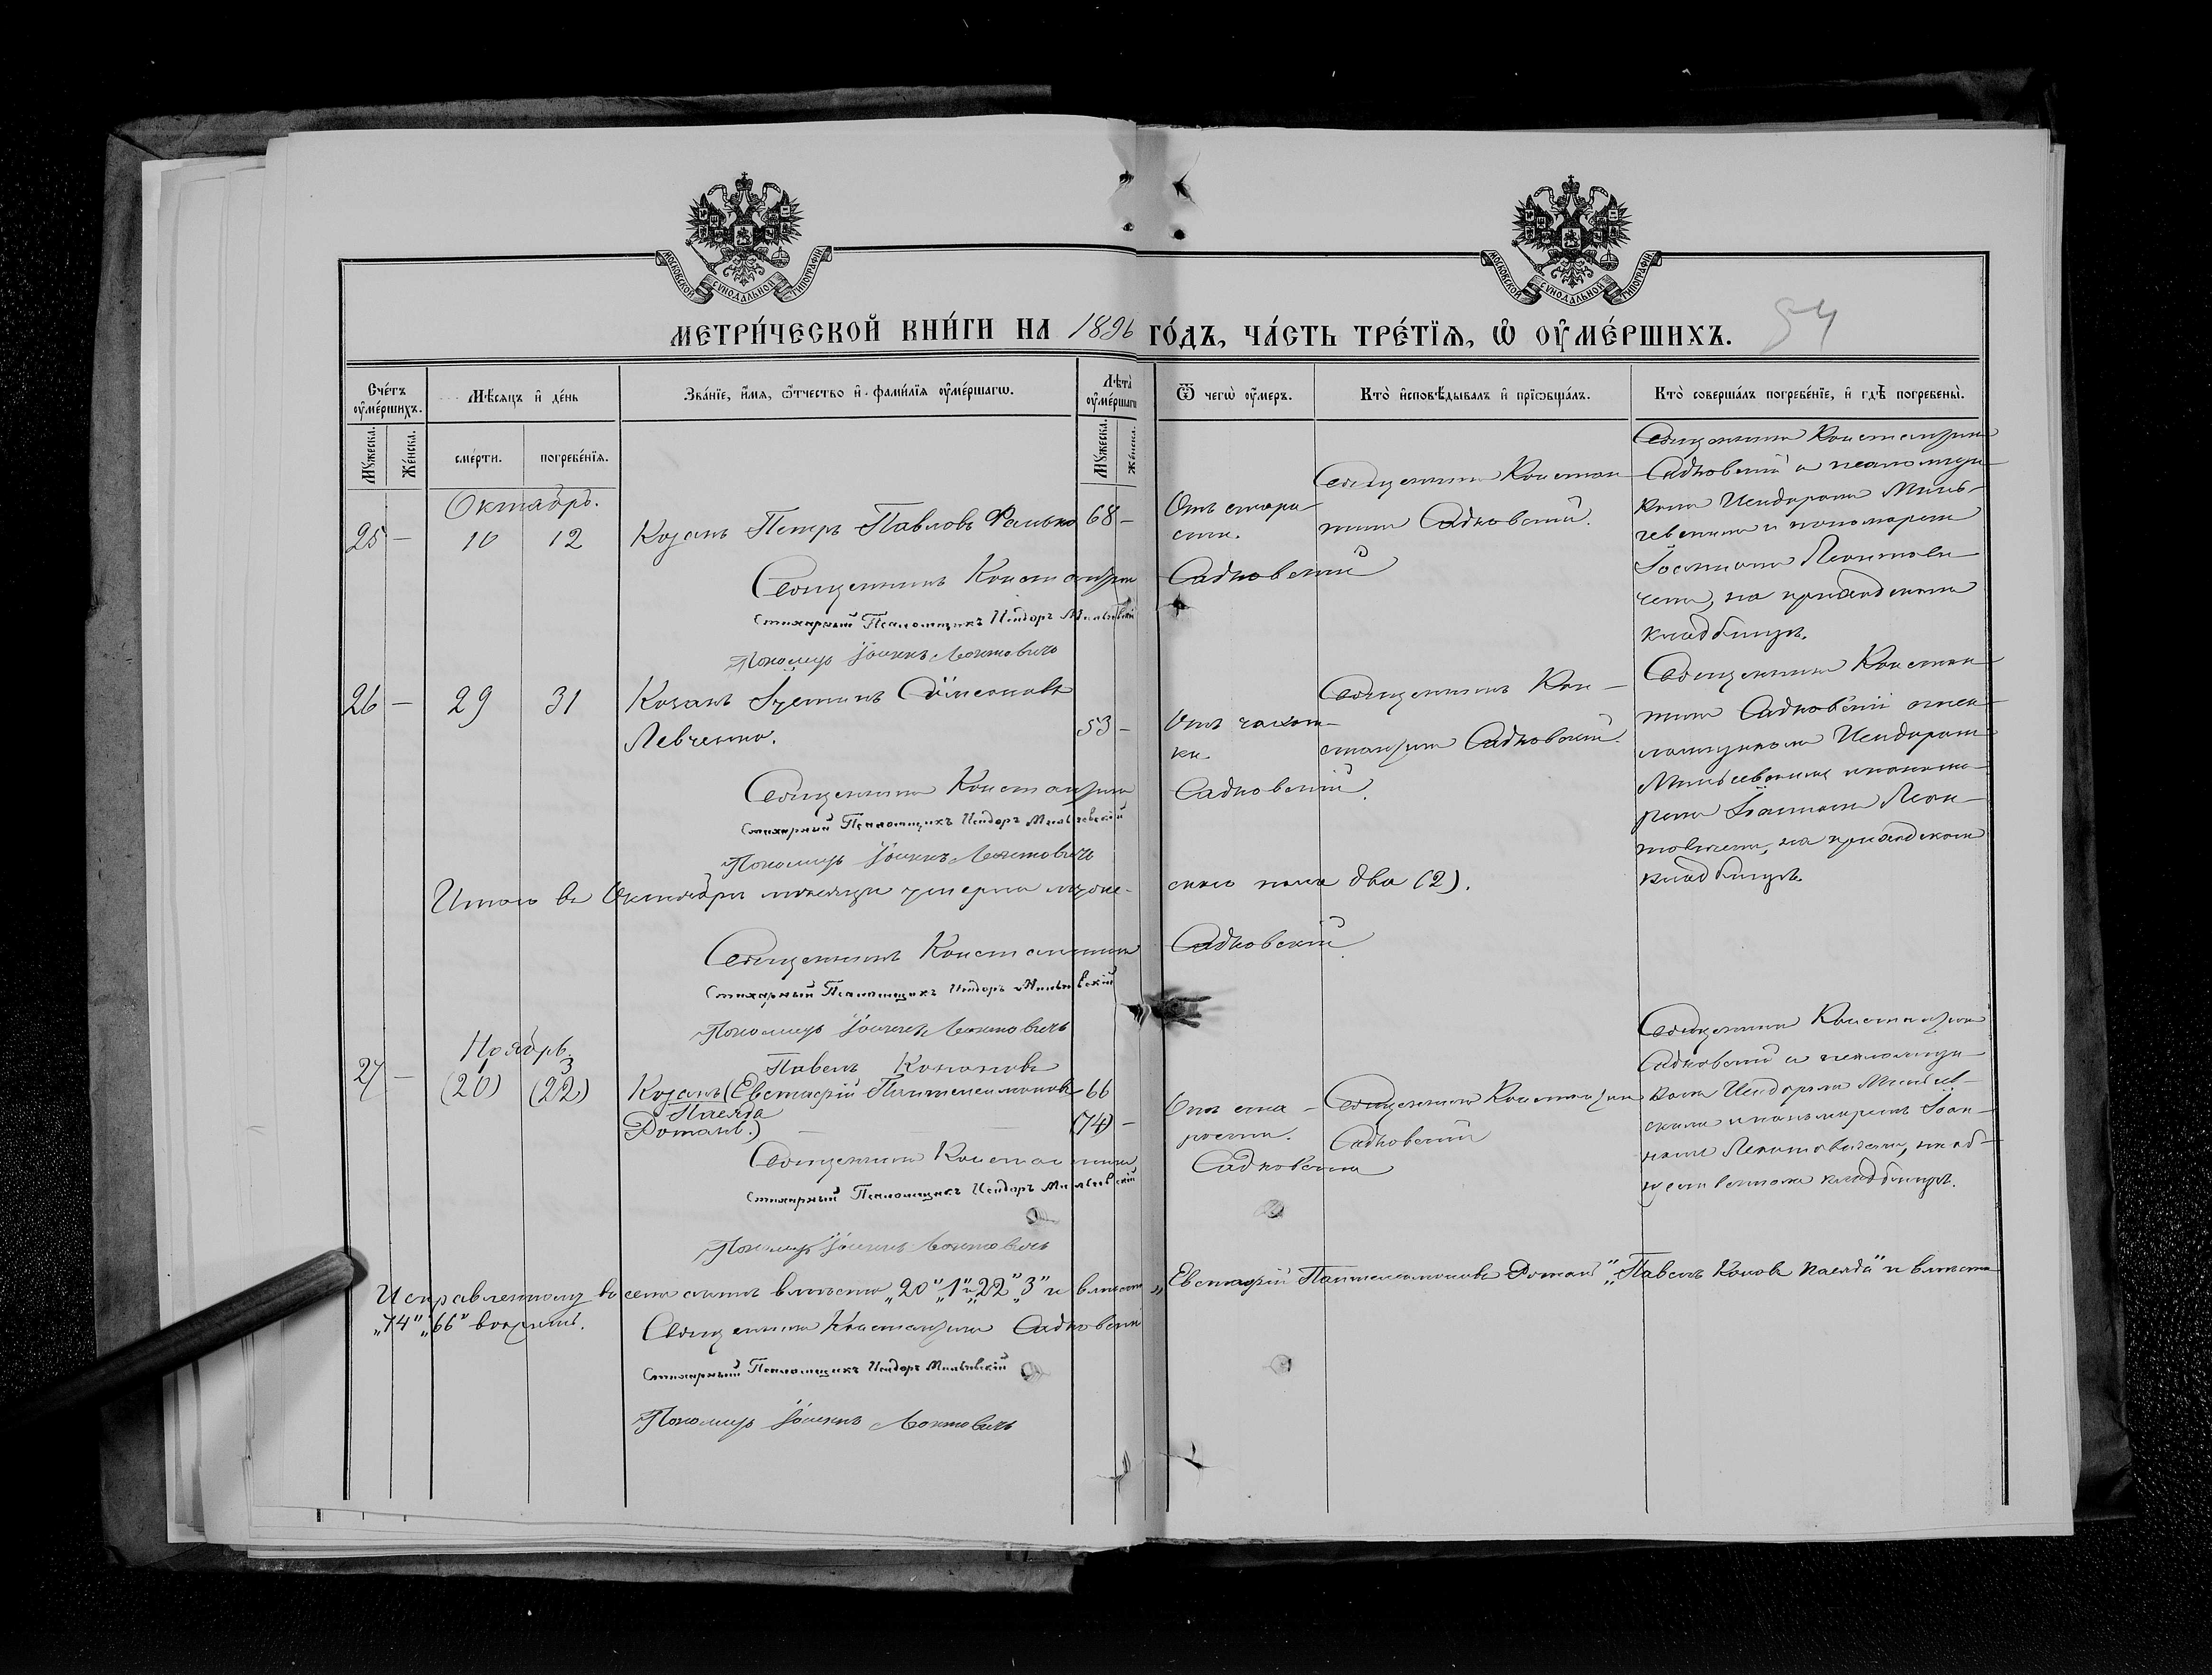 МОСКОВСКОЙ СУНОДАЛЬНОЙ ТИПОГРАФІИ
МОСКОВСКОЙ СУНОДАЛЬНОЙ ТИПОГРАФІИ
МЕТРИ́ЧЕСКОЙ КНИ́ГИ НА 1896 ГО́ДЪ, ЧА́СТЬ ТРЕ́ТІѦ, Ѡ ОУМЕ́РШИХЪ.
54
Сче́тъ оуме́ршихъ.
Мѣ́сяцъ и де́нь
Зва́ніе, и́мѧ, ѻ́тчество и фами́лїѧ оуме́ршагѡ.
Лѣта̀ оуме́ршагѡ
Ѿ чегѡ̀ оу́меръ.
Кто̀ исповѣ́дывалъ и прїѡбща́лъ.
Кто̀ соверша́лъ погребе́нїе, и гдѣ̀ погребены̀.
Мꙋ́жеска.
Же́нска.
сме́рти.
погребе́нїѧ.
Мꙋ́жеска.
Же́нска.
Октябрь.
25 — 10 12
Козакъ Петръ Павловъ
68 —
Отъ старо
сти.
Священникъ Констан
тинъ Садковскій.
Священникъ Константинъ
Садковскій и псаломщи-
комъ Исидоромъ Миль-
чевскимъ и пономаремъ
Іоанномъ Леонтови-
чемъ, на приходскомъ
кладбищѣ.
Священникъ Константинъ Садковскій
Стихарный Псаломщикъ Исидоръ Мильчевскій
Пономарь Іоаннъ Леонтовичъ
26 — 29 31
Козакъ Іустинъ Сѵмеоновъ
Левченко.
53 —
Отъ чахот-
ки.
Священникъ Кон-
стантинъ Садковскій.
Священникъ Констан
тинъ Садковскій и пса
ломщикомъ Исидоромъ
Мильчевскимъ и понома-
ремъ Іоанномъ Леон-
товичемъ, на приходскомъ
кладбищѣ.
Священникъ Константинъ Садковскій.
Стихарный Псаломщикъ Исидоръ Мильчевскій
Пономарь Іоаннъ Леонтовичъ
Итого въ Октябрѣ мѣсяцѣ умерло муже-скаго пола два (2).
Священникъ Константинъ Садковскій.
Стихарный Псаломщикъ Исидоръ Мильчевскій
Пономарь Іоаннъ Леонтовичъ
Ноябрь.
3
27 — (20) (22)
Павелъ Кононовъ
Козакъ (Евстафій Пантелеимоновъ
Плевда
Романъ.)
66
(74) —
Отъ ста-
рости.
Священникъ Константинъ
Садковскій
Священникъ Константинъ
Садковскій и псаломщи-
комъ Исидоромъ Мильчев-
скимъ и пономаремъ Іоан-
номъ Леонтовичемъ, на об-
щественномъ кладбищѣ.
Священникъ Константинъ Садковскій
Стихарный Псаломщикъ Исидоръ Мильчевскій
Пономарь Іоаннъ Леонтовичъ
Исправленному въ семъ актѣ вмѣсто „20" „1" „22" „3" и вмѣсто „Евстафій Пантелеимоновъ Романъ" „Павелъ Конон Плевда" и вмѣсто
„74" „66" вѣрить.
Священникъ Константинъ Садковскій
Стихарный Псаломщикъ Исидоръ Мильчевскій
Пономарь Іоаннъ Леонтовичъ